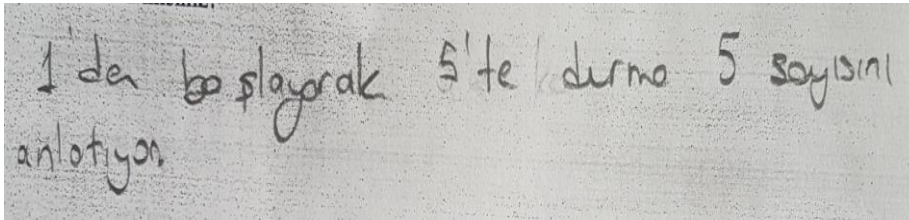 1'den başlayarak 5'te durma 5 sayısını
anlatıyor.